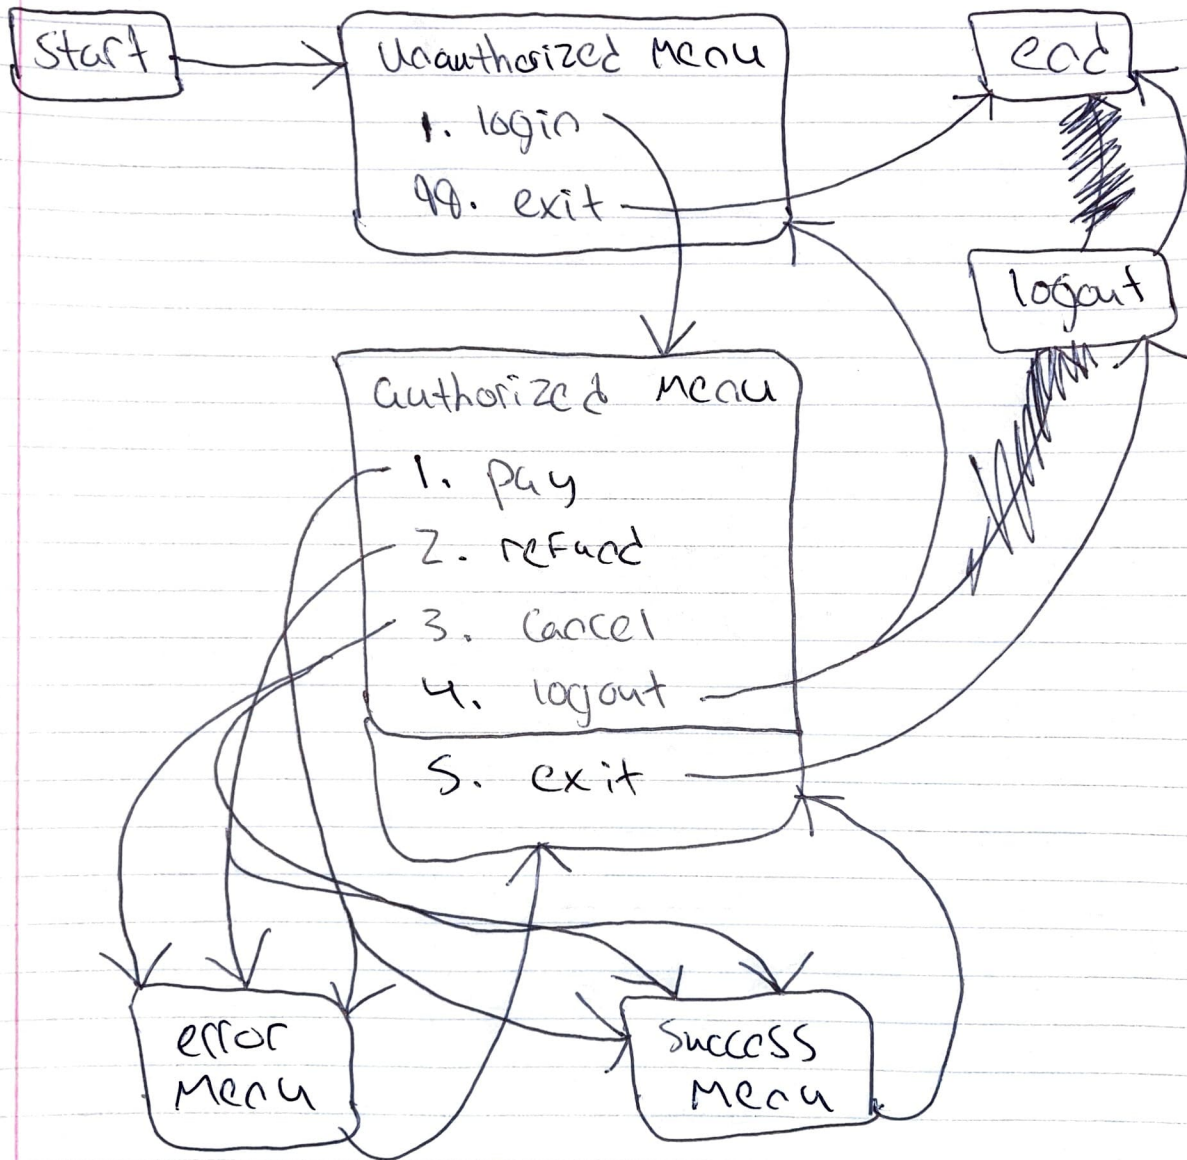 Start
Unauthorized Menu
1. login
99. exit
end
logout
authorized Menu
1. pay
2. refund
3. cancel
4. logout
5. exit
error
Menu
Success
Menu